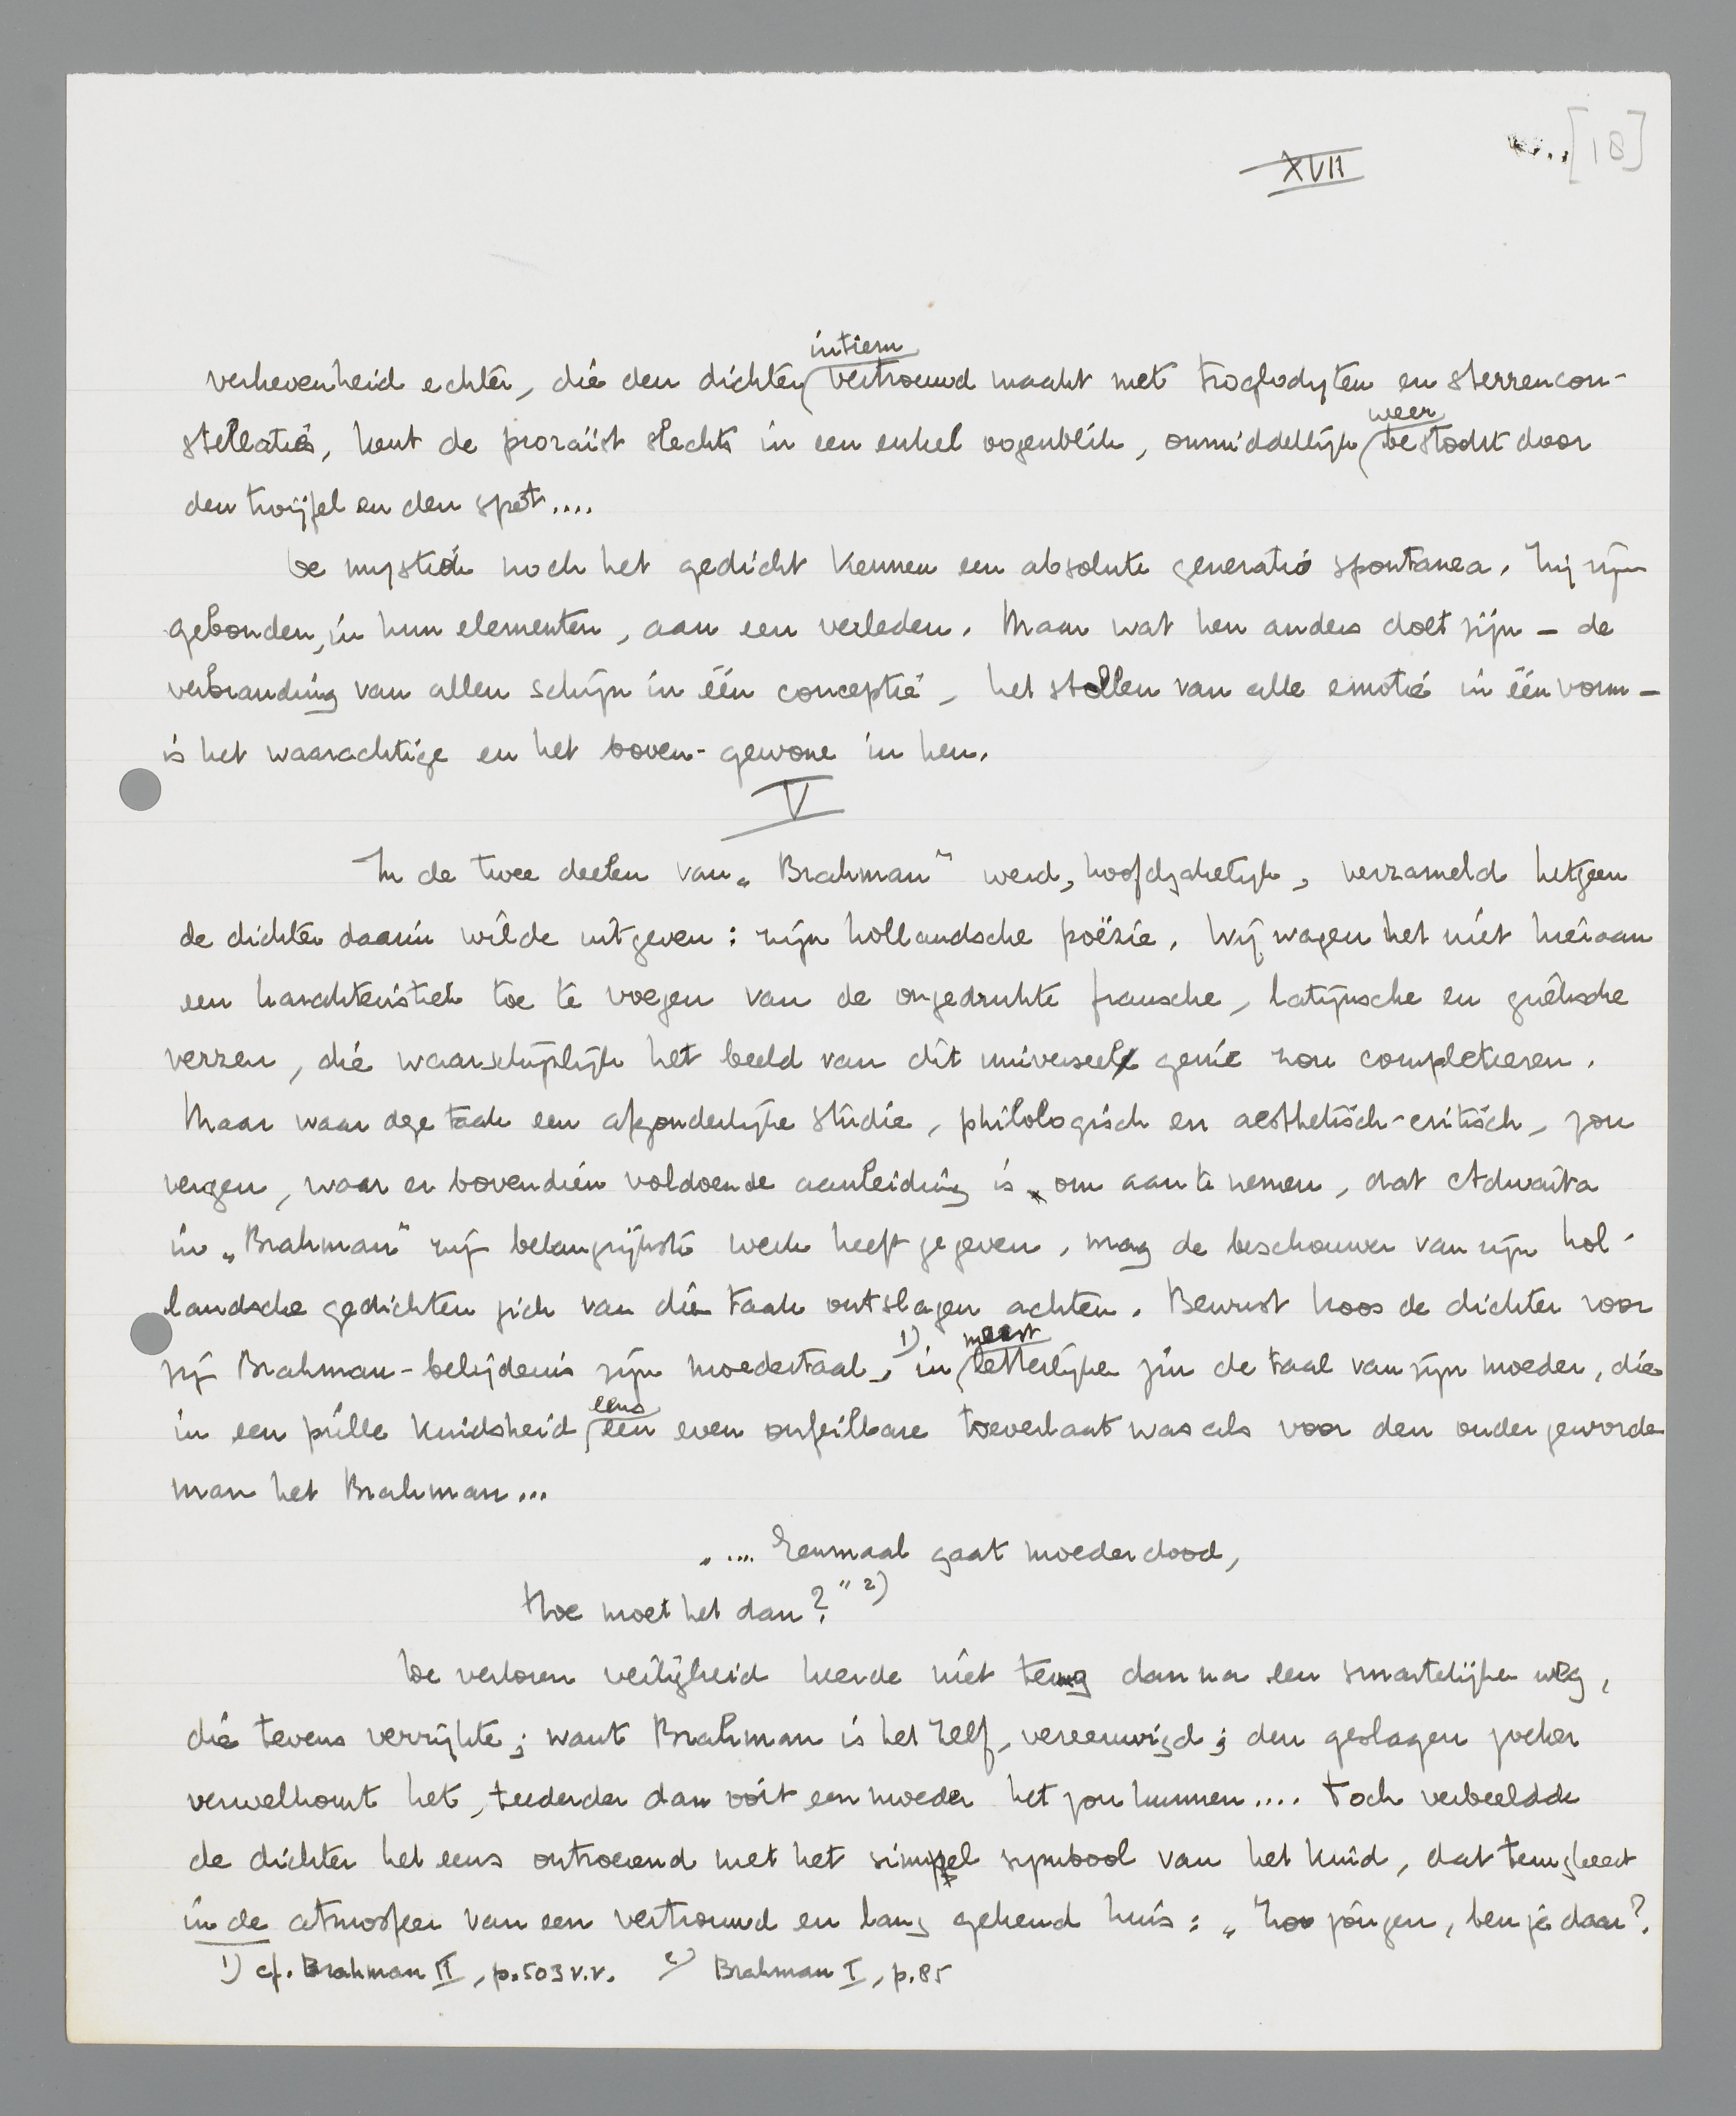 [18]
XVII
intiem
verhevenheid echter, die den dichter vertrouwd maakt met troglodyten en sterrencon-
weer
stellaties, kent de prozaïst slechts in een enkel oogenblik, onmiddellijk bestookt door
den twijfel en den spot....
De mystiek noch het gedicht kennen een absolute generatio spontanea. Zij zijn
gebonden, in hun elementen, aan een verleden. Maar wat hen anders doet zijn – de
verbranding van allen schijn in één conceptie, het stollen van alle emotie in één vorm –
is het waarachtige en het boven-gewone in hen.
V
In de twee deelen van „Brahman" werd, hoofdzakelijk, verzameld hetgeen
de dichter daarin wilde uitgeven: zijn hollandsche poëzie. Wij wagen het niet hieraan
een karakteristiek toe te voegen van de ongedrukte fransche, latijnsche en grieksche
verzen, die waarschijnlijk het beeld van dit universeel genie zou completeeren.
Maar waar deze taak een afzonderlijke studie, philologisch en aesthetisch-critisch, zou
vergen, waar er bovendien voldoende aanleiding is om aan te nemen, dat Adwaita
in „Brahman" zijn belangrijkste werk heeft gegeven, mag de beschouwer van zijn hol-
landsche gedichten zich van die taak ontslagen achten. Bewust koos de dichter voor
meest
zijn Brahman-belijdenis zijn moedertaal, 1) in letterlijken zin de taal van zijn moeder, die
eens
in een prille kindsheid een even onfeilbare toeverlaat was als voor den ouder geworden
man het Brahman...
„.... Eenmaal gaat moeder dood,
Hoe moet het dan?" 2)
De verloren veiligheid keerde niet terug dan na een smartelijken weg,
die tevens verrijkte; want Brahman is het Zelf, vereeuwigd; den geslagen zoeker
verwelkomt het, teederder dan ooit een moeder het zou kunnen.... Toch verbeeldde
de dichter het eens ontroerend met het simpel symbool van het kind, dat terugkeert
in de atmosfeer van een vertrouwd en lang gekend huis: „Zoo jongen, ben je daar?
1) cf. Brahman II, p. 503 v.v. 2) Brahman I, p. 85